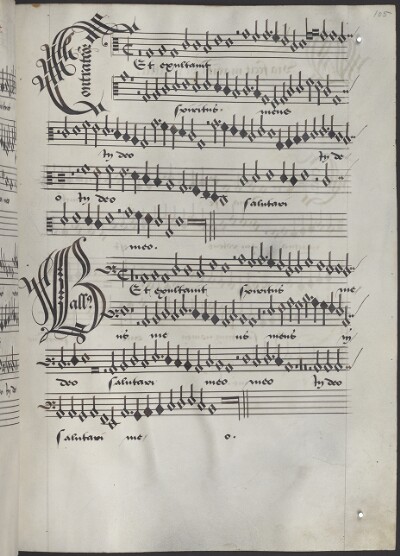 105
Contratenor
Et exultavit
spiritus meus
In deo In de
o In deo salutari
meo.
Bassus
Et exultavit spiritus me
us me us meus in
deo salutari meo meo In deo
salutari me o.